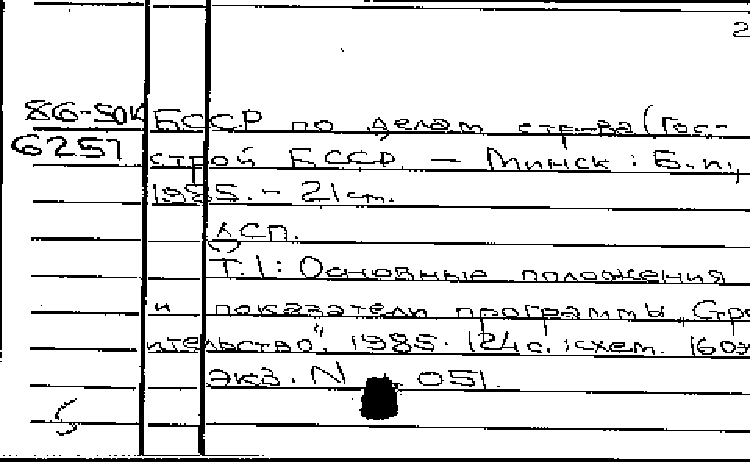 2
86-50К БССР по делам стр-ва (Гос-
6257 строй БССР. - Минск : Б.и.,
1985. - 21 см.
ДСП.
Т.1: Основные положения
и показатели программы „Стро
ительство". 1985. 124 с. : схем. 160 э
экз. N 051.